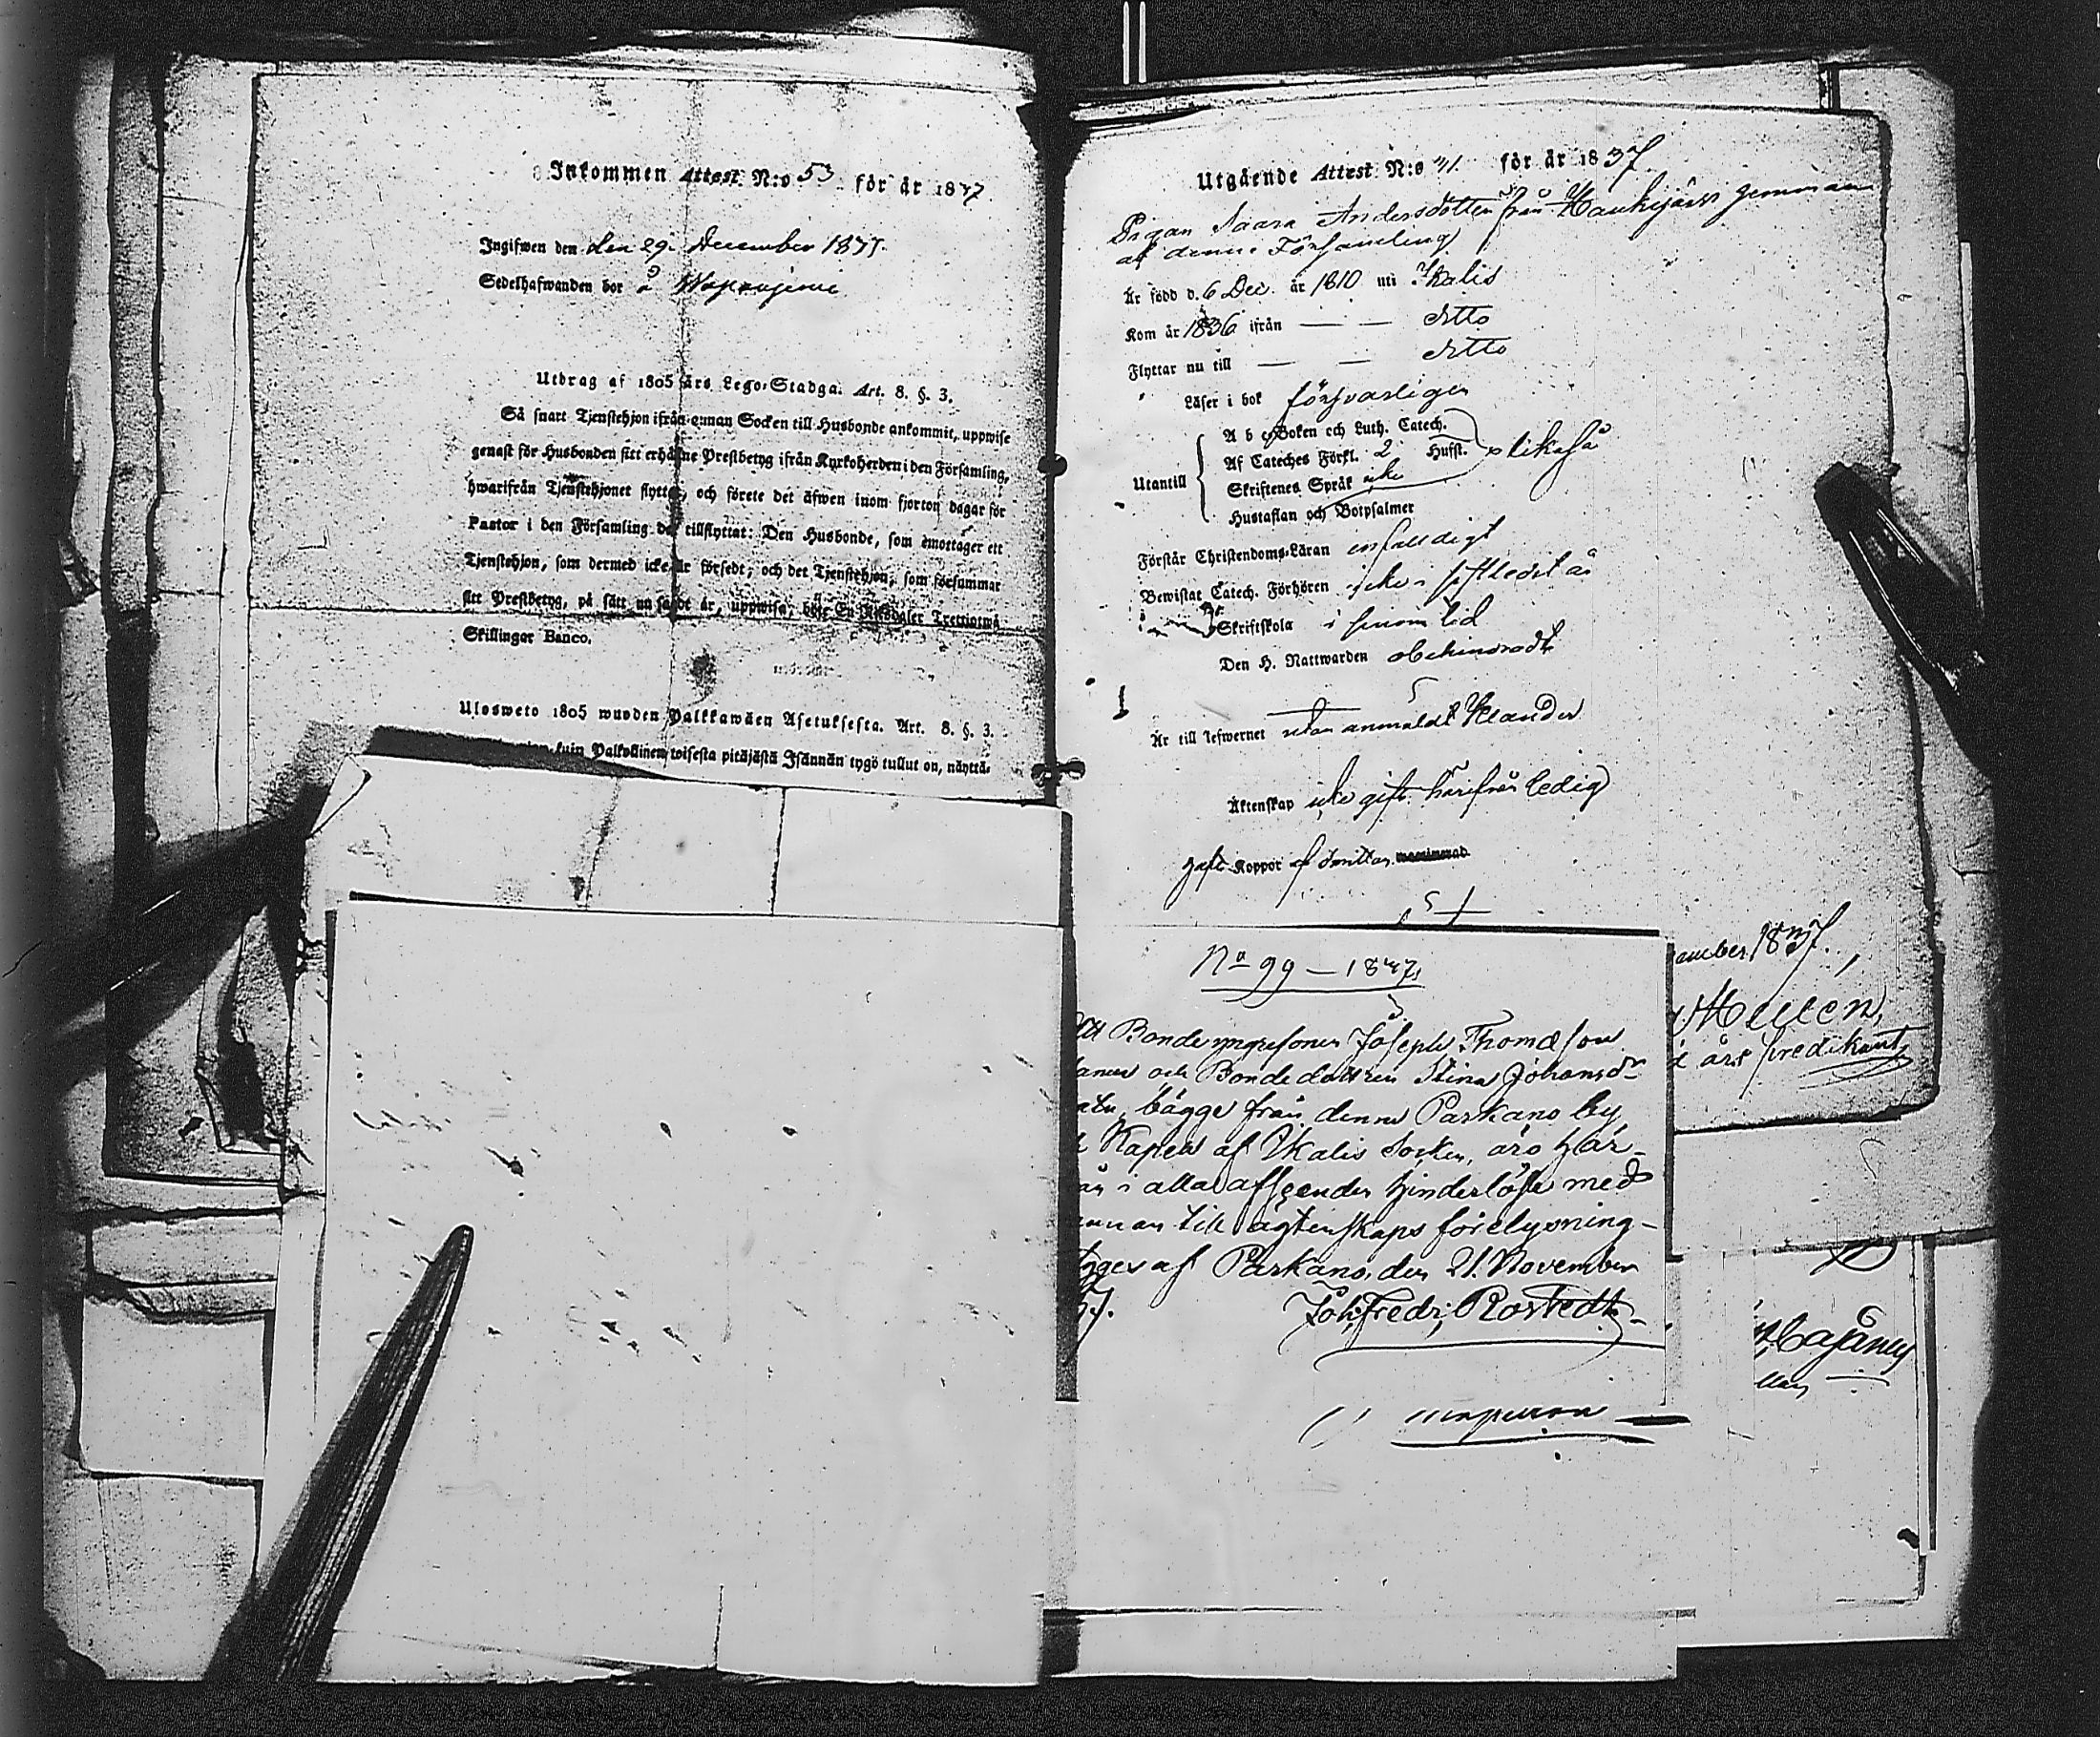 Inkommen Attest N:o 53 för år 1837
Ingifwen den den 29 December 1837.
Sedelhafwanden bor å
Utdrag af 1805 års Lego-Stadga. Art. 8. §. 3.
Så snart Tjenstehjon ifrån annan Socken till Husbonde ankommit, uppwise
genast för Husbonden sitt erhållne Prestbetyg ifrån Kyrkoherden i den Församling,
hwarifrån Tjenstehjonet flyttat, och förete det äfwen inom fjorton dagar för
Pastor i den Församling det tillflyttat: Den Husbonde, som emottager ett
Tjenstehjon, som dermed icke är försedt, och det Tjenstehjon, som försummar
sitt Prestbetyg, på sätt nu sagdt är, uppwisa, böte En Riksdaler Trettiotwå
Skillingar Banco.
Ulosweto 1805 wuoden Palkkawäen Asetuksesta. Art. 8. §. 3.
kuin Palkollinen toisesta pitäjästä Isännän tygö tullut on, näyttä-
Utgående Attest N:o 41. för år 1837.
Pigan Saara Andersdotter från Haukijärvi
af denna Församling
Är född d. 6 Dec. år 1810 uti Ikalis
Kom år 1836 ifrån — — ditto
Flyttar nu till — — ditto
Läser i bok försvarligen
Utantill
A b c-Boken och Luth. Catech.
Af Cateches Förkl. 2 Hufst. likaså
Skriftenes Språk icke
Hustaflan och Botpsalmer
Förstår Christendoms-Läran enfaldigt
Bewistat Catech. Förhören icke i sistledit år
Skriftskola i sinom tid
Den H. Nattwarden obehindradt
Är till lefwernet utan anmäldt klander
Äktenskap icke gift härifrån ledig
haft Koppor af smittan
ember 1837.
Mellen,
års predikant
No 99 — 1837.
Att Bondeyngresonen Joseph Thomæson
och Bondedottren Stina Johansdr
bägge från denne Parkano by
Kapell af Ikalis Socken, äro här-
ån i alla afseenden hinderlöse med
annan till ägtenskaps förelysning
af Parkano, den 21. November
37. Joh: Fredr: Rostedt